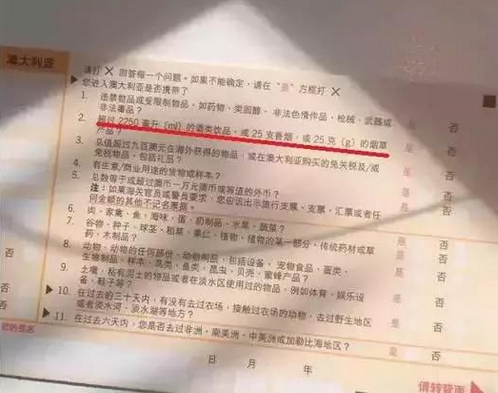 澳大利亚
请打 × 回答每一个问题。如果不能确定，请在“是”方框打 ×
您进入澳大利亚是否携带了
1. 违禁物品或受限制物品，如药物、类固醇、非法色情作品、枪械、武器或 是 否
非法毒品？
2. 超过 2250 毫升（ml）的酒类饮品，或 25 支香烟，或 25 克（g）的烟草 是 否
产品？
3. 总值超过九百澳元在海外获得的物品，或在澳大利亚购买的免关税及/或 是 否
免税物品，包括礼品？
4. 有生意/商业用途的货物或样本？ 是 否
5. 总数等于或超过澳币一万元澳币或等值的外币？ 是 否
注：如果海关官员或警员要求，您应该出示旅行支票、支票、汇票或者任
何金额的其他不记名票据。
6. 肉、家禽、鱼、海味、蛋、奶制品、水果、蔬菜？ 是 否
7. 谷物、种子、球茎、秸菜、果仁、植物、植物的某一部分、传统药材或草 是 否
药、木制品？
8. 动物、动物的任何部份、动物制品，包括设备、宠物食品、蛋类、 是 否
生物制品、样本、鸟类、鱼类、昆虫、贝壳、蜜蜂产品？
9. 土壤，粘有泥土的物品或者在淡水区使用过的物品，例如体育、娱乐设 是 否
备、鞋子等？
10. 在过去的三十天内，有没有去过农场，接触过农场的动物，去过野生地区 是 否
或者淡水河、淡水湖等地方？
11. 在过去六天内，您是否去过非洲、南美洲、中美洲或加勒比海地区？ 是 否
您的签名
日 月 年
请转背面
否
否
否